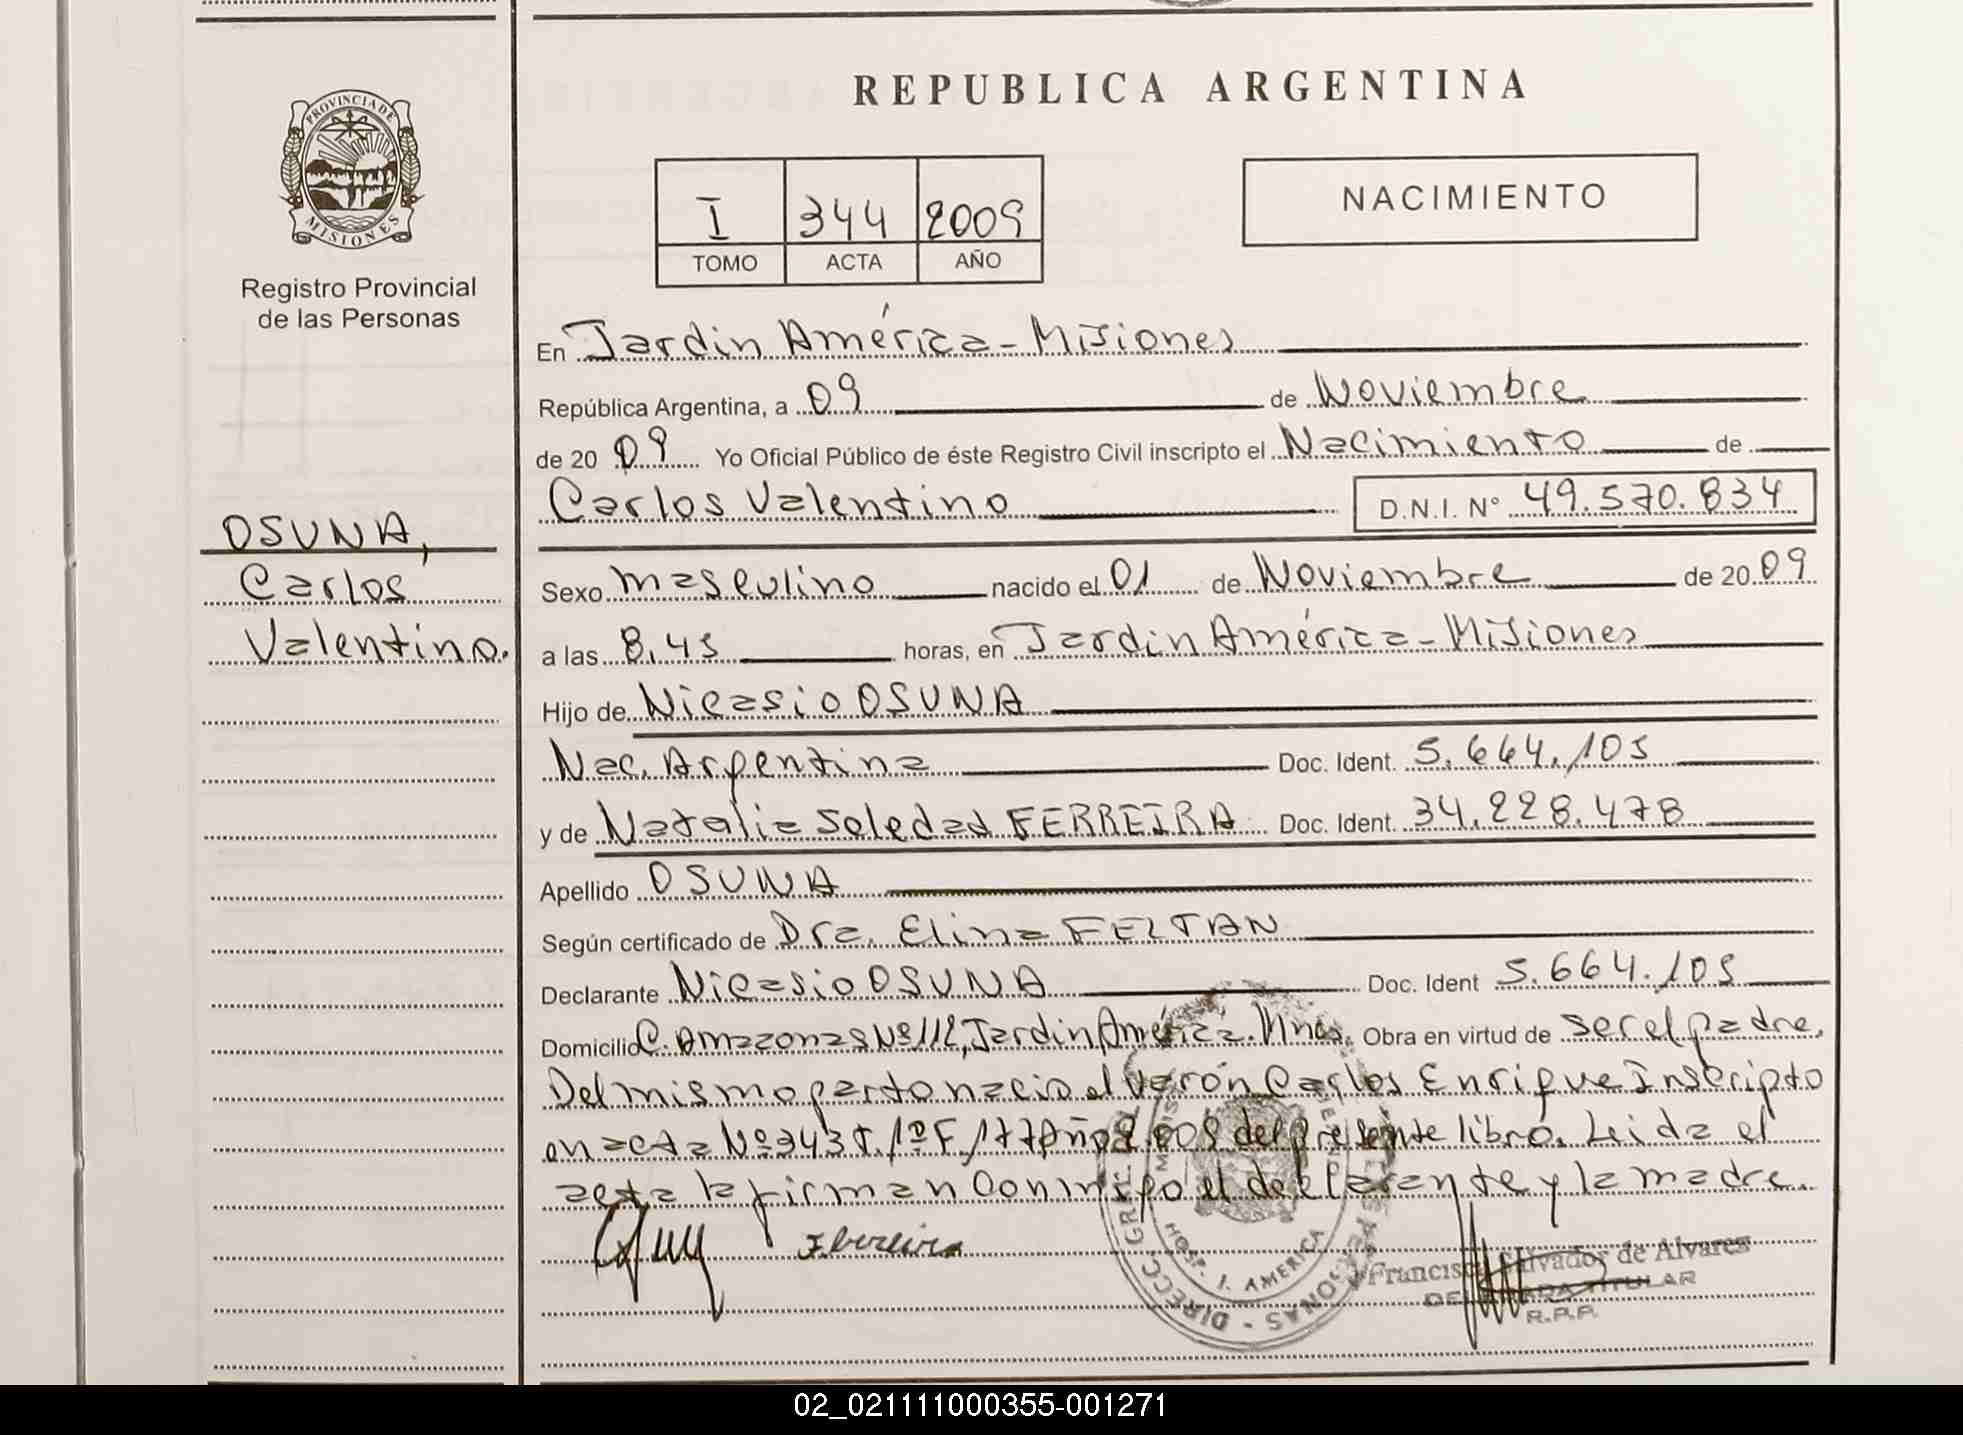 REPUBLICA ARGENTINA
PROVINCIA DE MISIONES
Registro Provincial
de las Personas
I 344 2009
TOMO ACTA AÑO
NACIMIENTO
OSUNA,
Carlos
Valentino.
En Jardin América - Misiones
República Argentina, a 09 de Noviembre
de 20 09 Yo Oficial Público de éste Registro Civil inscripto el Nacimiento de
Carlos Valentino D.N.I. Nº 49.570.834
Sexo masculino nacido el 01 de Noviembre de 20 09
a las 8,45 horas, en Jardin América - Misiones
Hijo de Nicasio OSUNA
Nac. Argentina Doc. Ident. 5.664.105
y de Natalia Soledad FERREIRA Doc. Ident. 34.228.478
Apellido OSUNA
Según certificado de Dra. Elina FELTAN
Declarante Nicasio OSUNA Doc. Ident 5.664.105
Domicilio C. Amazonas Nº 112, Jardin América. Mnes. Obra en virtud de ser el padre.
Del mismo parto nacio el varón Carlos Enrique Inscripto
en acta Nº 343 T. 1º F. 177 Año 2.009 del presente libro. Leida el
acta la firman conmigo el declarante y la madre.
Ferreira
DIRECC. GRAL. PERSONAS - MISIONES
HOSP. J. AMERICA
Francisca Salvador de Alvares
DELEGADA TITULAR
R.P.P.
02_021111000355-001271